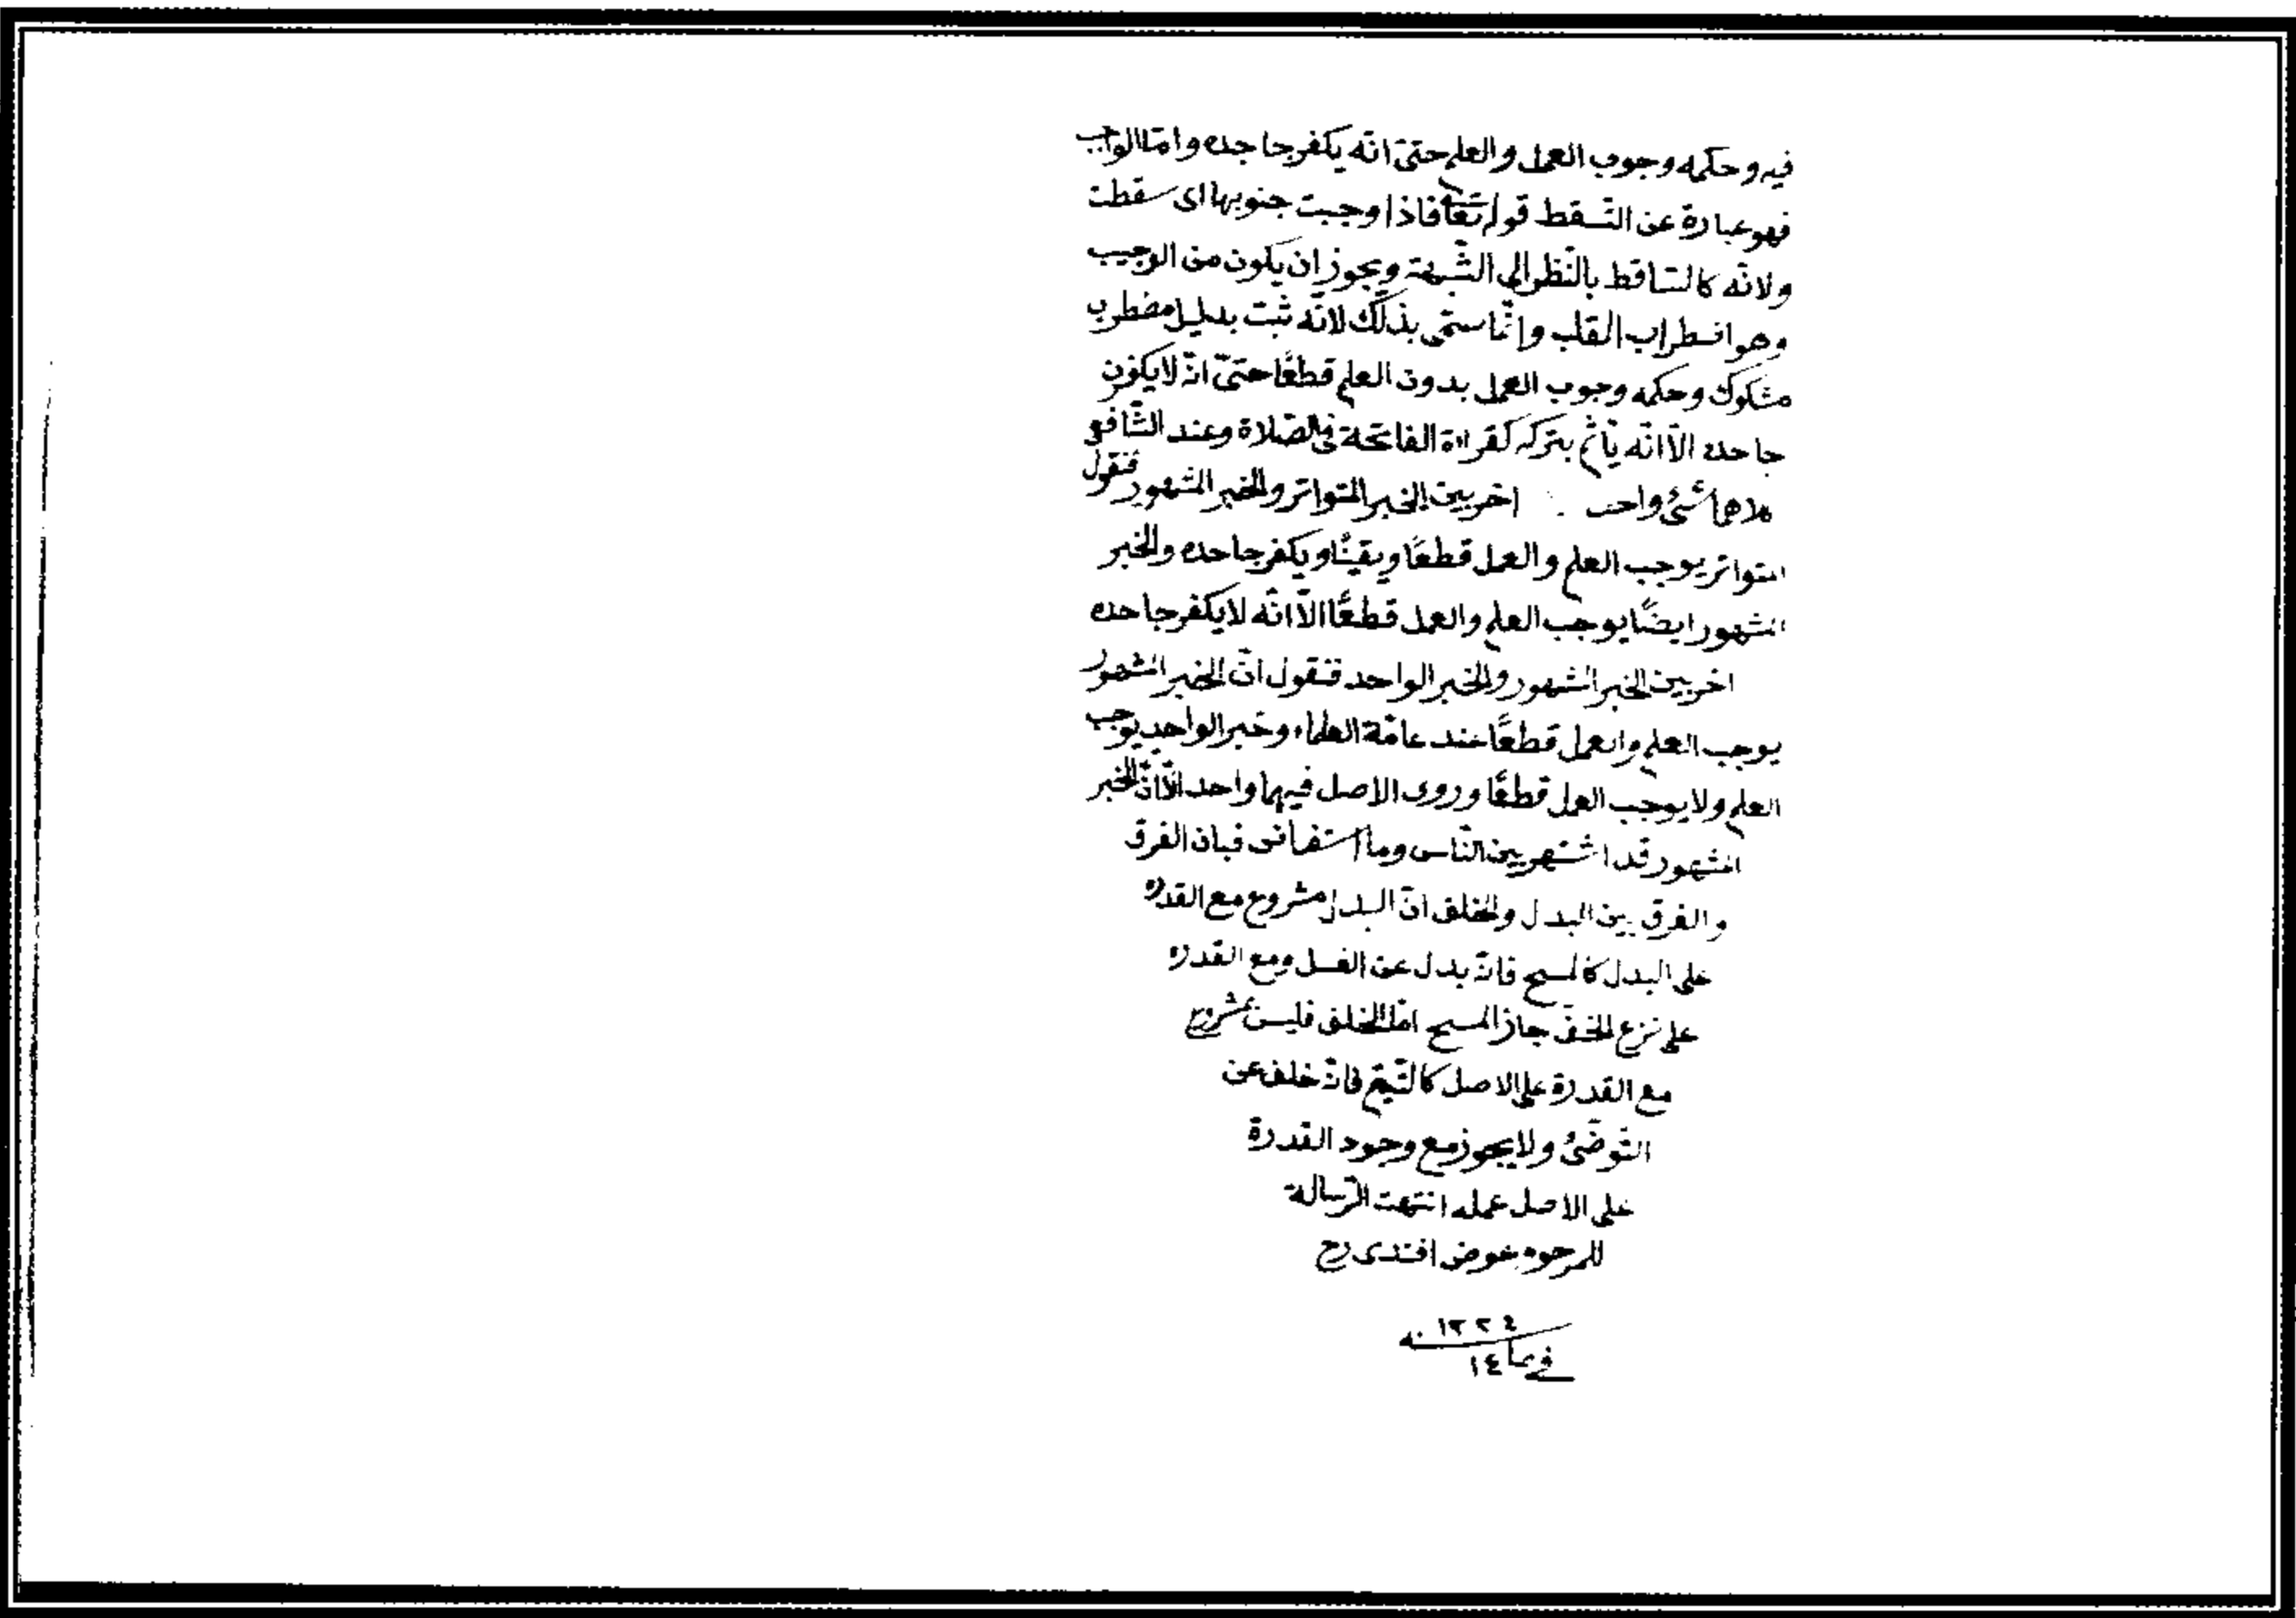 فيه وحكمه وجوب العمل والعلم حتى انّه يكفر جاحده وامّا الواجب
فهو عبارة عن السّقط قوله تعالى فاذا وجبت جنوبها اى سقطت
ولانّه كالسّاقط بالنّظر الى الشّبهة ويجوز ان يكون من الوجيب
وهو اضطراب القلب وانّما سمّى بذلك لانّه ثبت بدليل مضطرب
مشكوك وحكمه وجوب العمل بدون العلم قطعًا حتىّ انّه لا يكفر
جاحده الاّ انّه يأثم بتركه كقراءة الفاتحة فى الصّلاة وعند الشّافعى
كلاهما شئ واحد اخر بين الخبر المتواتر والخبر المشهور فنقول
المتواتر يوجب العلم والعمل قطعًا ويقينًا ويكفر جاحده والخبر
المشهور ايضًا يوجب العلم والعمل قطعًا الاّ انّه لا يكفر جاحده
اخر بين الخبر المشهور والخبر الواحد فنقول انّ الخبر المشهور
يوجب العلم والعمل قطعًا عند عامّة العلماء وخبر الواحد يوجب
العلم ولا يوجب العمل قطعًا وروى الاصل فيهما واحد الاّ انّ الخبر
المشهور قد اشتهر بين النّاس وما استفاض فبان الفرق
والفرق بين البدل والخلف انّ البدل مشروع مع القدره
على البدل كالمسح فانّه بدل عن الغسل ومع القدره
على نزع الخفّ جاز المسح امّا الخلف فليس بمشروع
مع القدرة على الاصل كالتّيمّم فانّه خلف عن
التّوضّئ ولا يجوز مع وجود القدرة
على الاصل عمله انتهت الرّسالة
للمرحوم عوض افندى رح
١٢٢٤ سنه
١٤